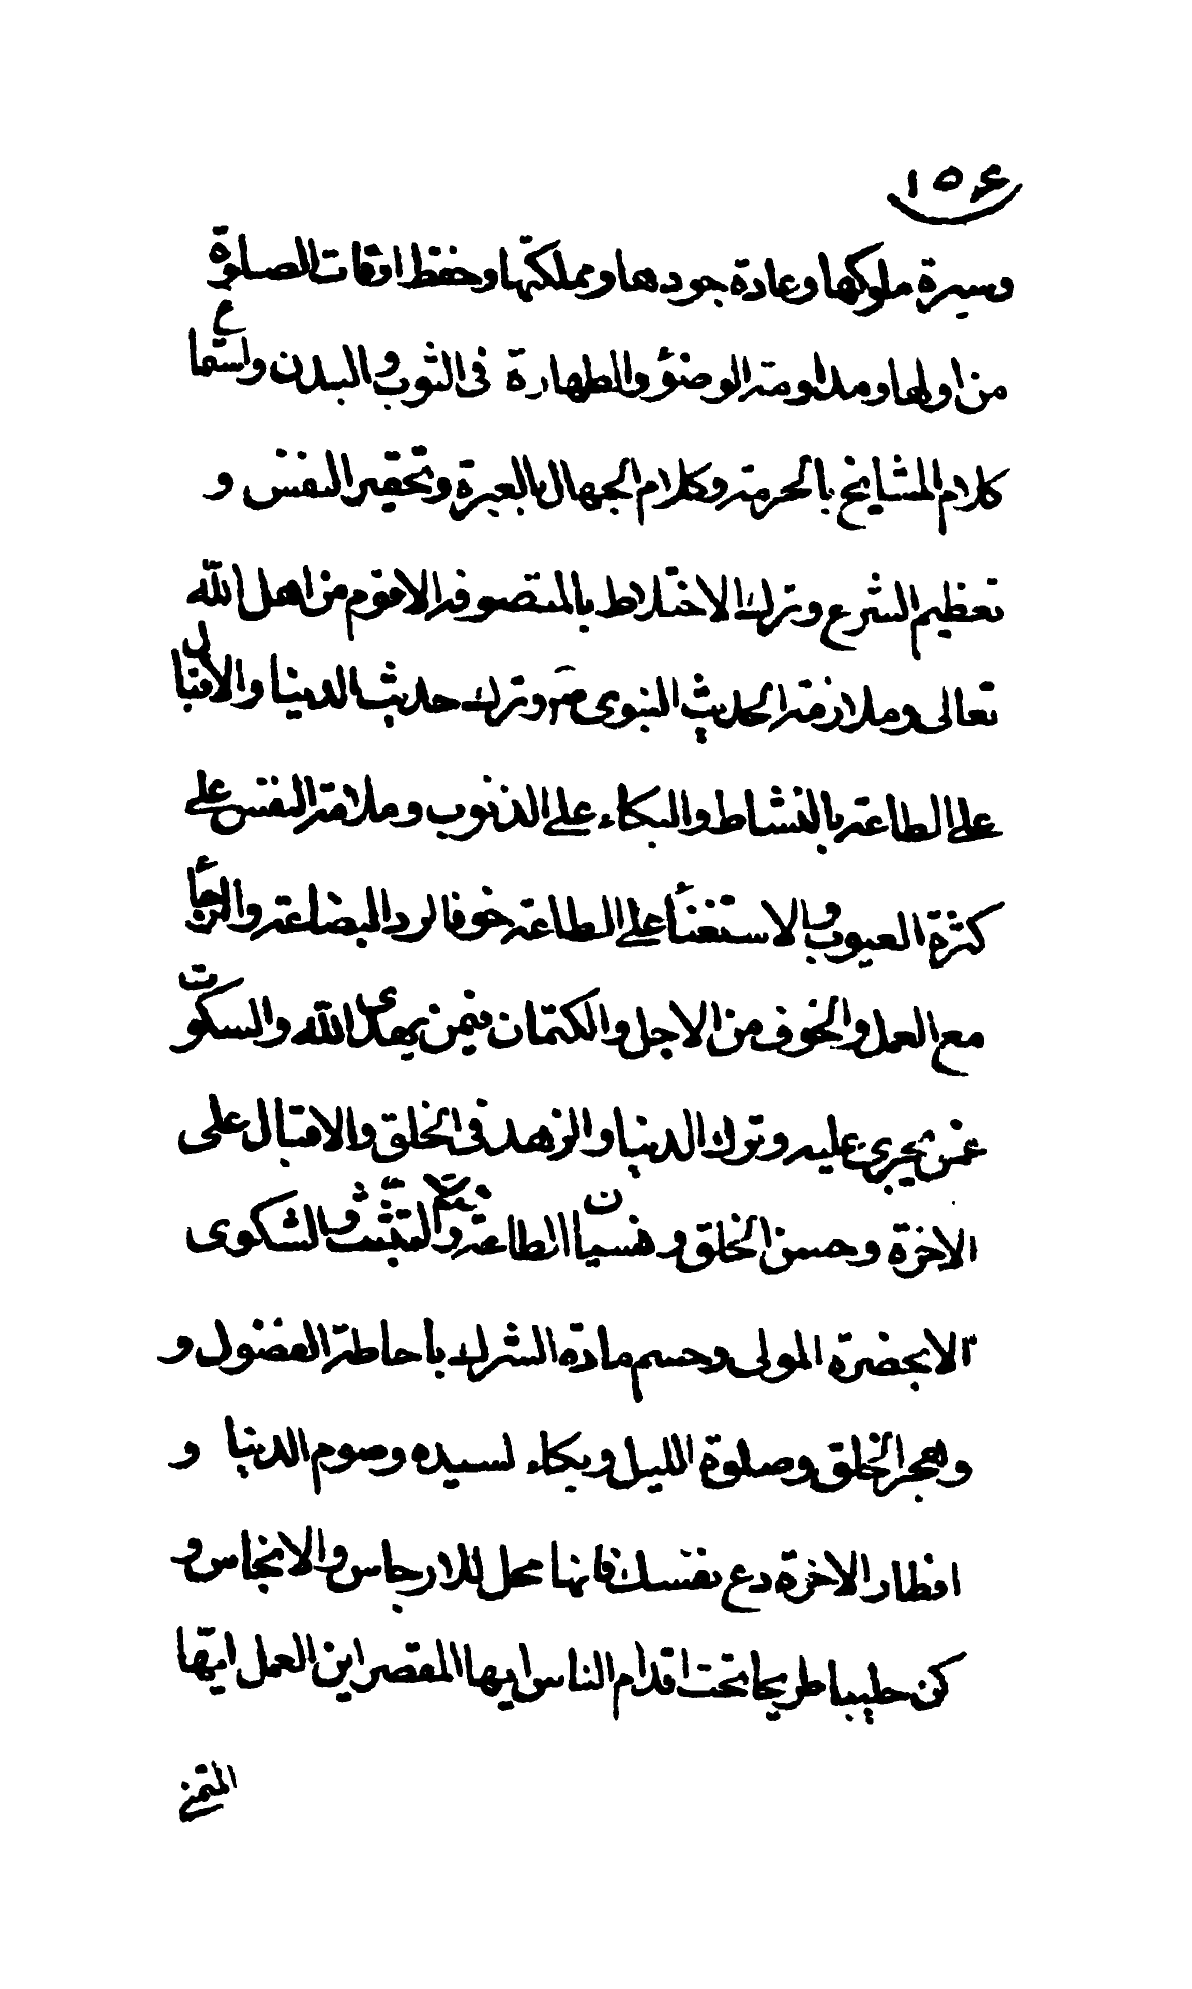 ١٥۶
وسيرة ملوكها وعادة جودها ومملكتها وحفظ اوقات الصلوة
من اولها ومداومة الوضوء والطهارة في الثوب والبدن واستماع
كلام المشايخ بالحرمة وكلام الجهال بالعبرة وتحقير النفس و
تعظيم الشرع وترك الاختلاط بالمتصوفة الاقوم من اهل الله
تعالى وملازمة الحديث النبوي وترك حديث الدنيا والاقبال
على الطاعة بالنشاط والبكاء على الذنوب وملامة النفس على
كثرة العيوب والاستغناء على الطاعة خوفا لرد البضاعة والرجاء
مع العمل والخوف من الاجل والكتمان فيمن يهدى الله والسكوت
عمن يجرى عليه وترك الدنيا والزهد فى الخلق والاقبال على
الاخرة وحسن الخلق ونسيان الطاعة والشكوى
الا بحضرة المولى وحسم مادة الشرك باحاطة الفضول و
وهجر الخلق وصلوة الليل وبكاء لسيده وصوم الدنيا و
افطار الاخرة دع نفسك فانها محل للارجاس والانجاس و
كن طيبا طريحا تحت اقدام الناس ايها المقصر اين العمل ايها
المتمنى